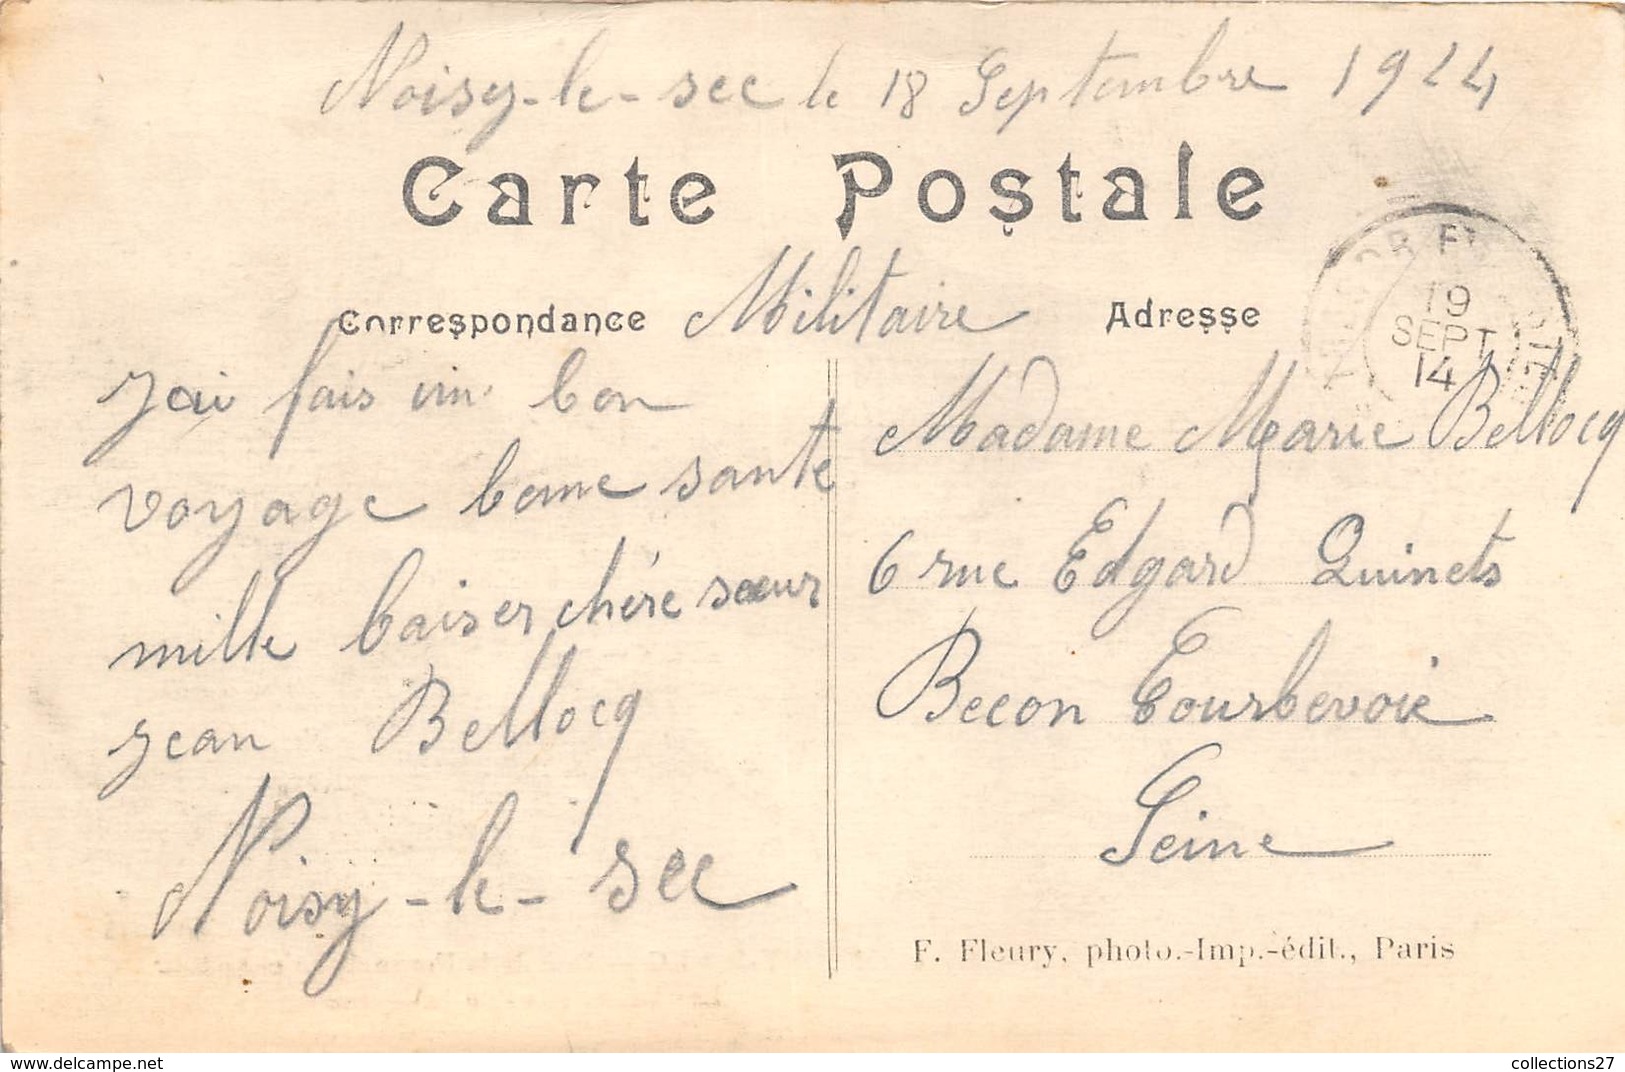 Noisy-le-sec le 18 Septembre 1914
Carte Postale
Correspondance Militaire
Adresse
19
SEPT
14
Jai fais un bon
voyage bonne santé
mille baiser chére sœur
Jean Bellocq
Noisy-le-sec
Madame Marie Bellocq
6 rue Edgard Quinets
Becon Courbevoie
Seine
F. Fleury, photo.-Imp.-édit., Paris
collections27